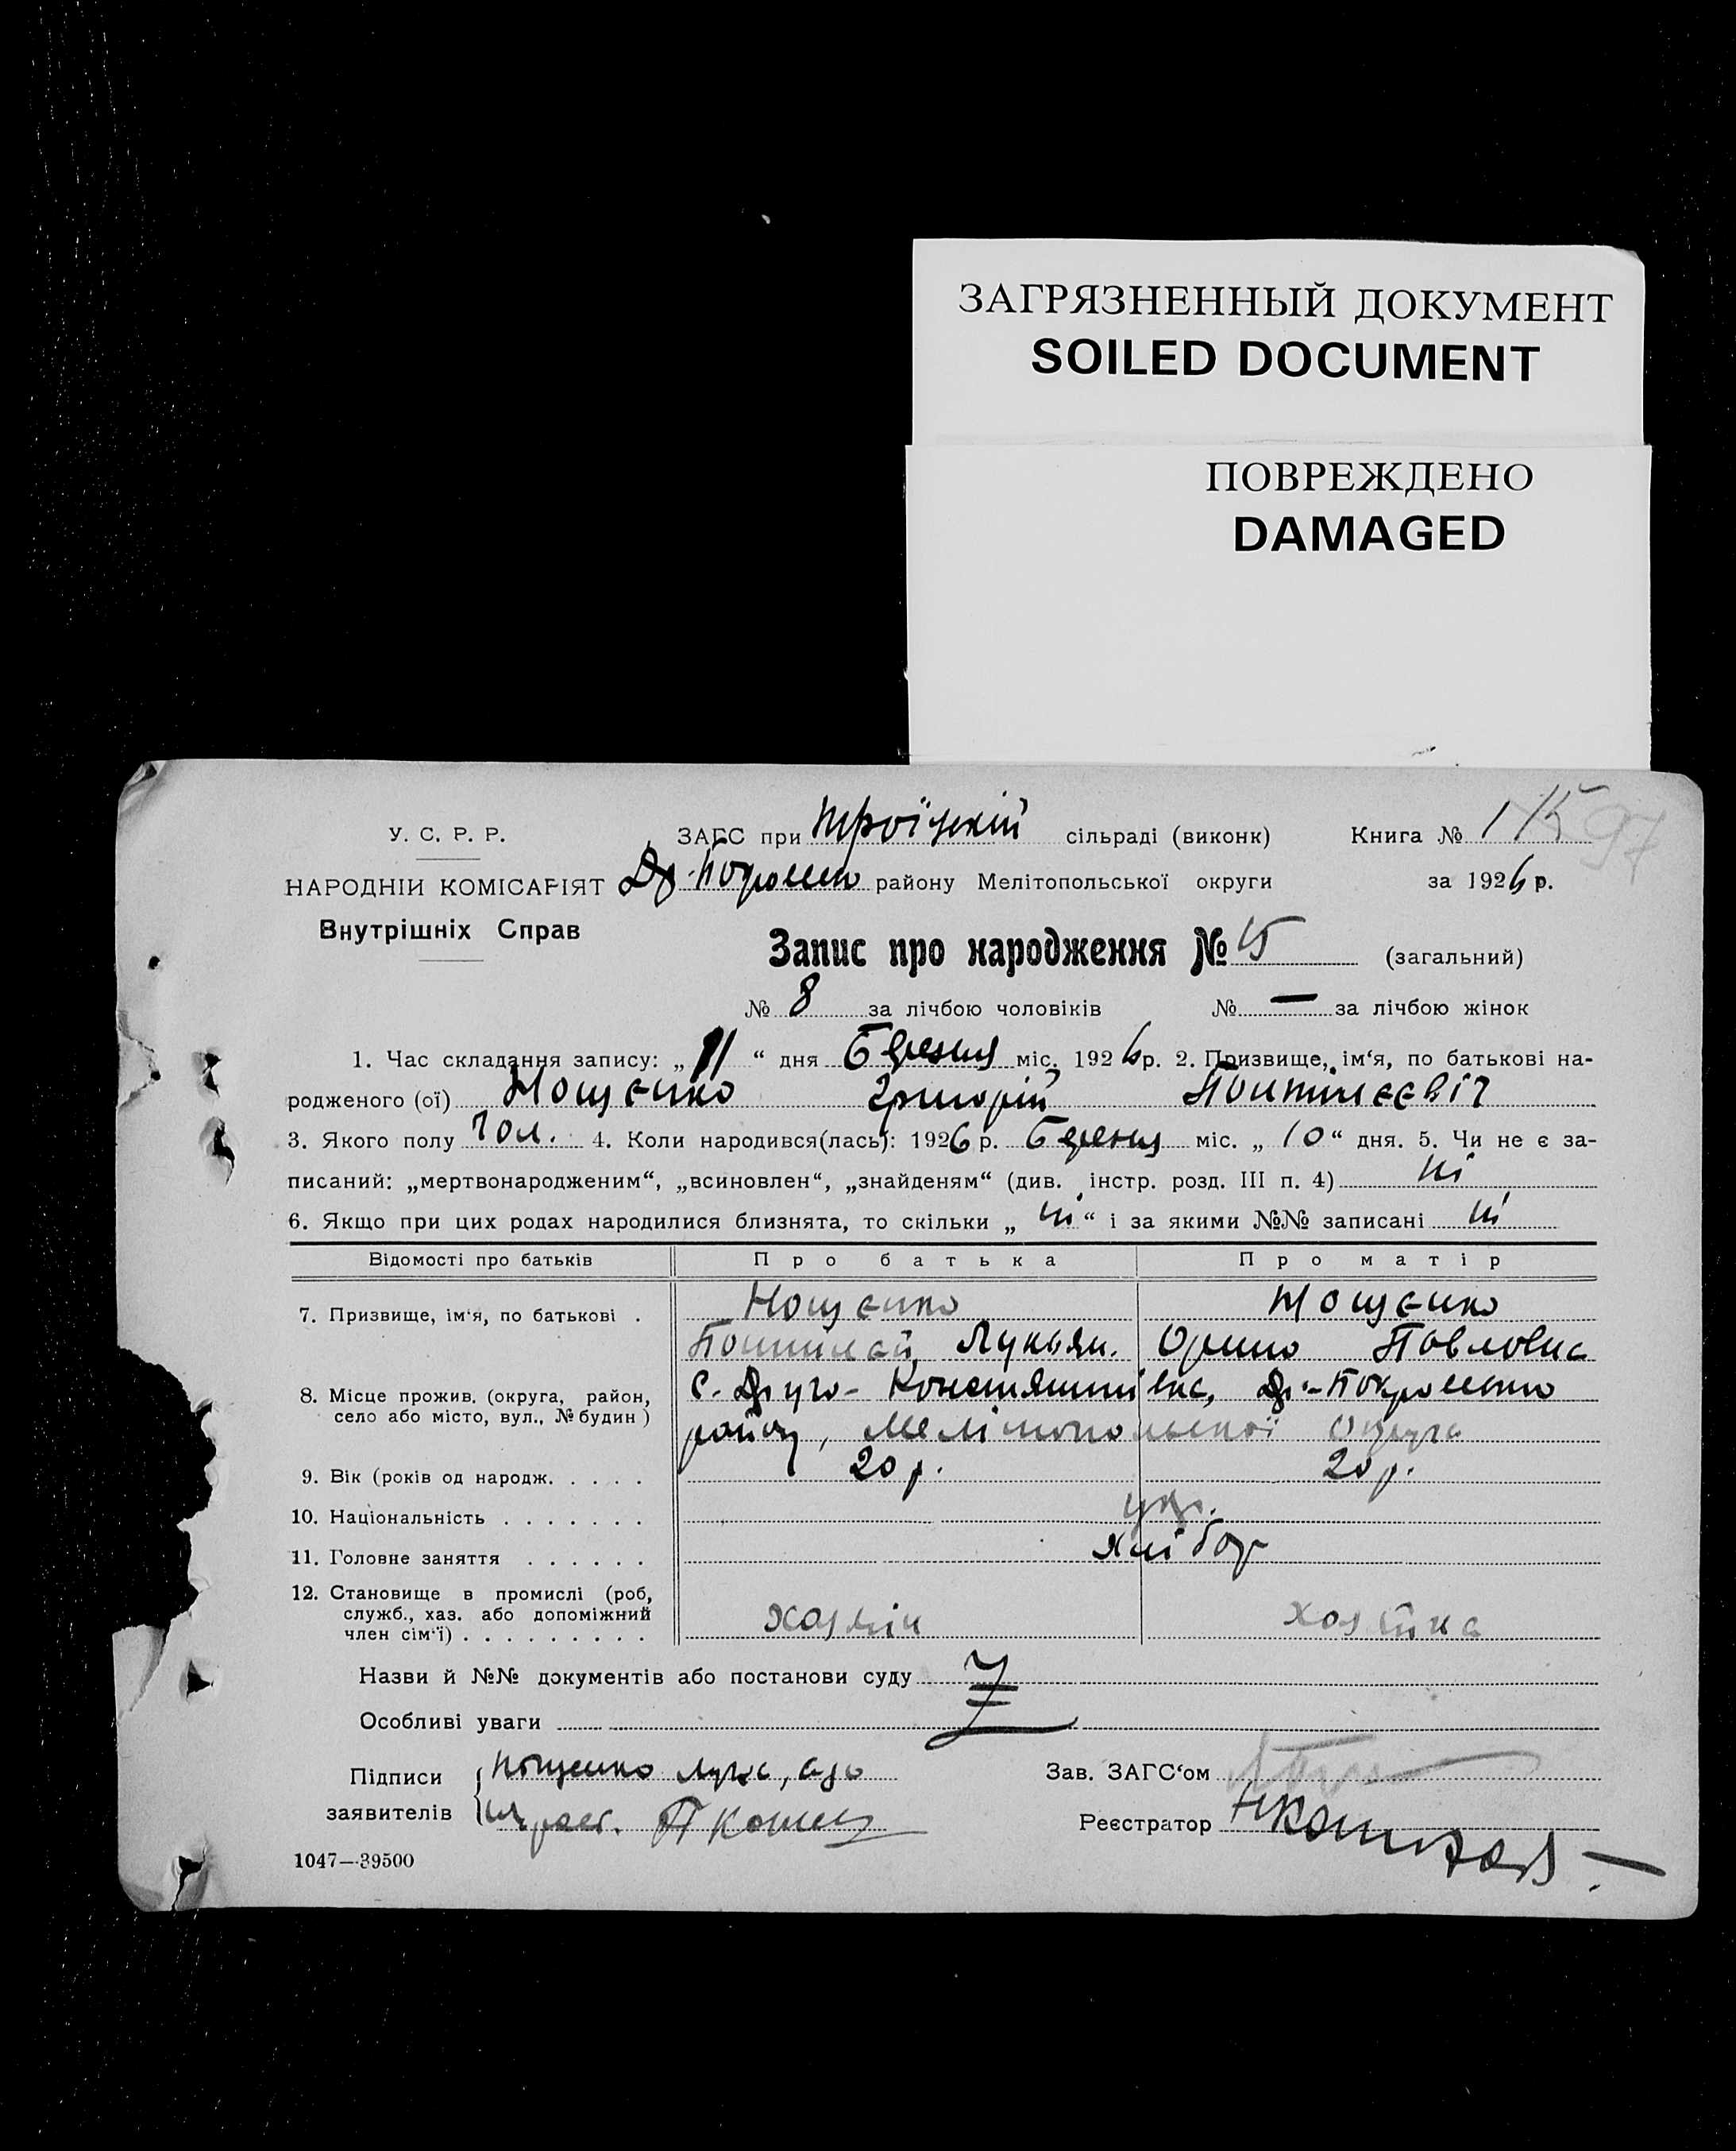 ЗАГРЯЗНЕННЫЙ ДОКУМЕНТ
SOILED DOCUMENT
ПОВРЕЖДЕНО
DAMAGED
У. С. Р. Р. ЗАГС при Троїцкій сільраді (виконк) Книга № 1
97
НАРОДНІЙ КОМІСАРІЯТ району Мелітопольської округи за 1926 р.
Внутрішніх Справ
Запис про народження № (загальний)
№ 8 за лічбою чоловіків № — за лічбою жінок
1. Час складання запису: „11“ дня Березня міс. 1926 р. 2. Призвище, ім‘я, по батькові на-
родженого (ої) Нощенко Григорій
3. Якого полу Чол. 4. Коли народився(лась): 1926 р. Березня міс. „10“ дня. 5. Чи не є за-
писаний: „мертвонародженим“, „всиновлен“, „знайденям“ (див. інстр. розд. III п. 4) ні
6. Якщо при цих родах народилися близнята, то скільки „ні“ і за якими №№ записані ні
Відомості про батьків Про батька Про матір
7. Призвище, ім‘я, по батькові . Нощенко Нощенко
Лукьян. Павловна
8. Місце прожив. (округа, район, село або місто, вул., № будин) с. Друго-
району, Мелітопольської Округи
9. Вік (років од народж. . . . . 20 р. 20 р.
10. Національність . . . . . . . укр.
11. Головне заняття . . . . . . хлібор
12. Становище в промислі (роб,
служб., хаз. або допоміжний
член сім‘ї) . . . . . . . . . хозяін хозяйка
Назви й №№ документів або постанови суду
Особливі уваги
Підписи Нощенко Зав. ЗАГС‘ом
заявителів Реєстратор
1047—39500